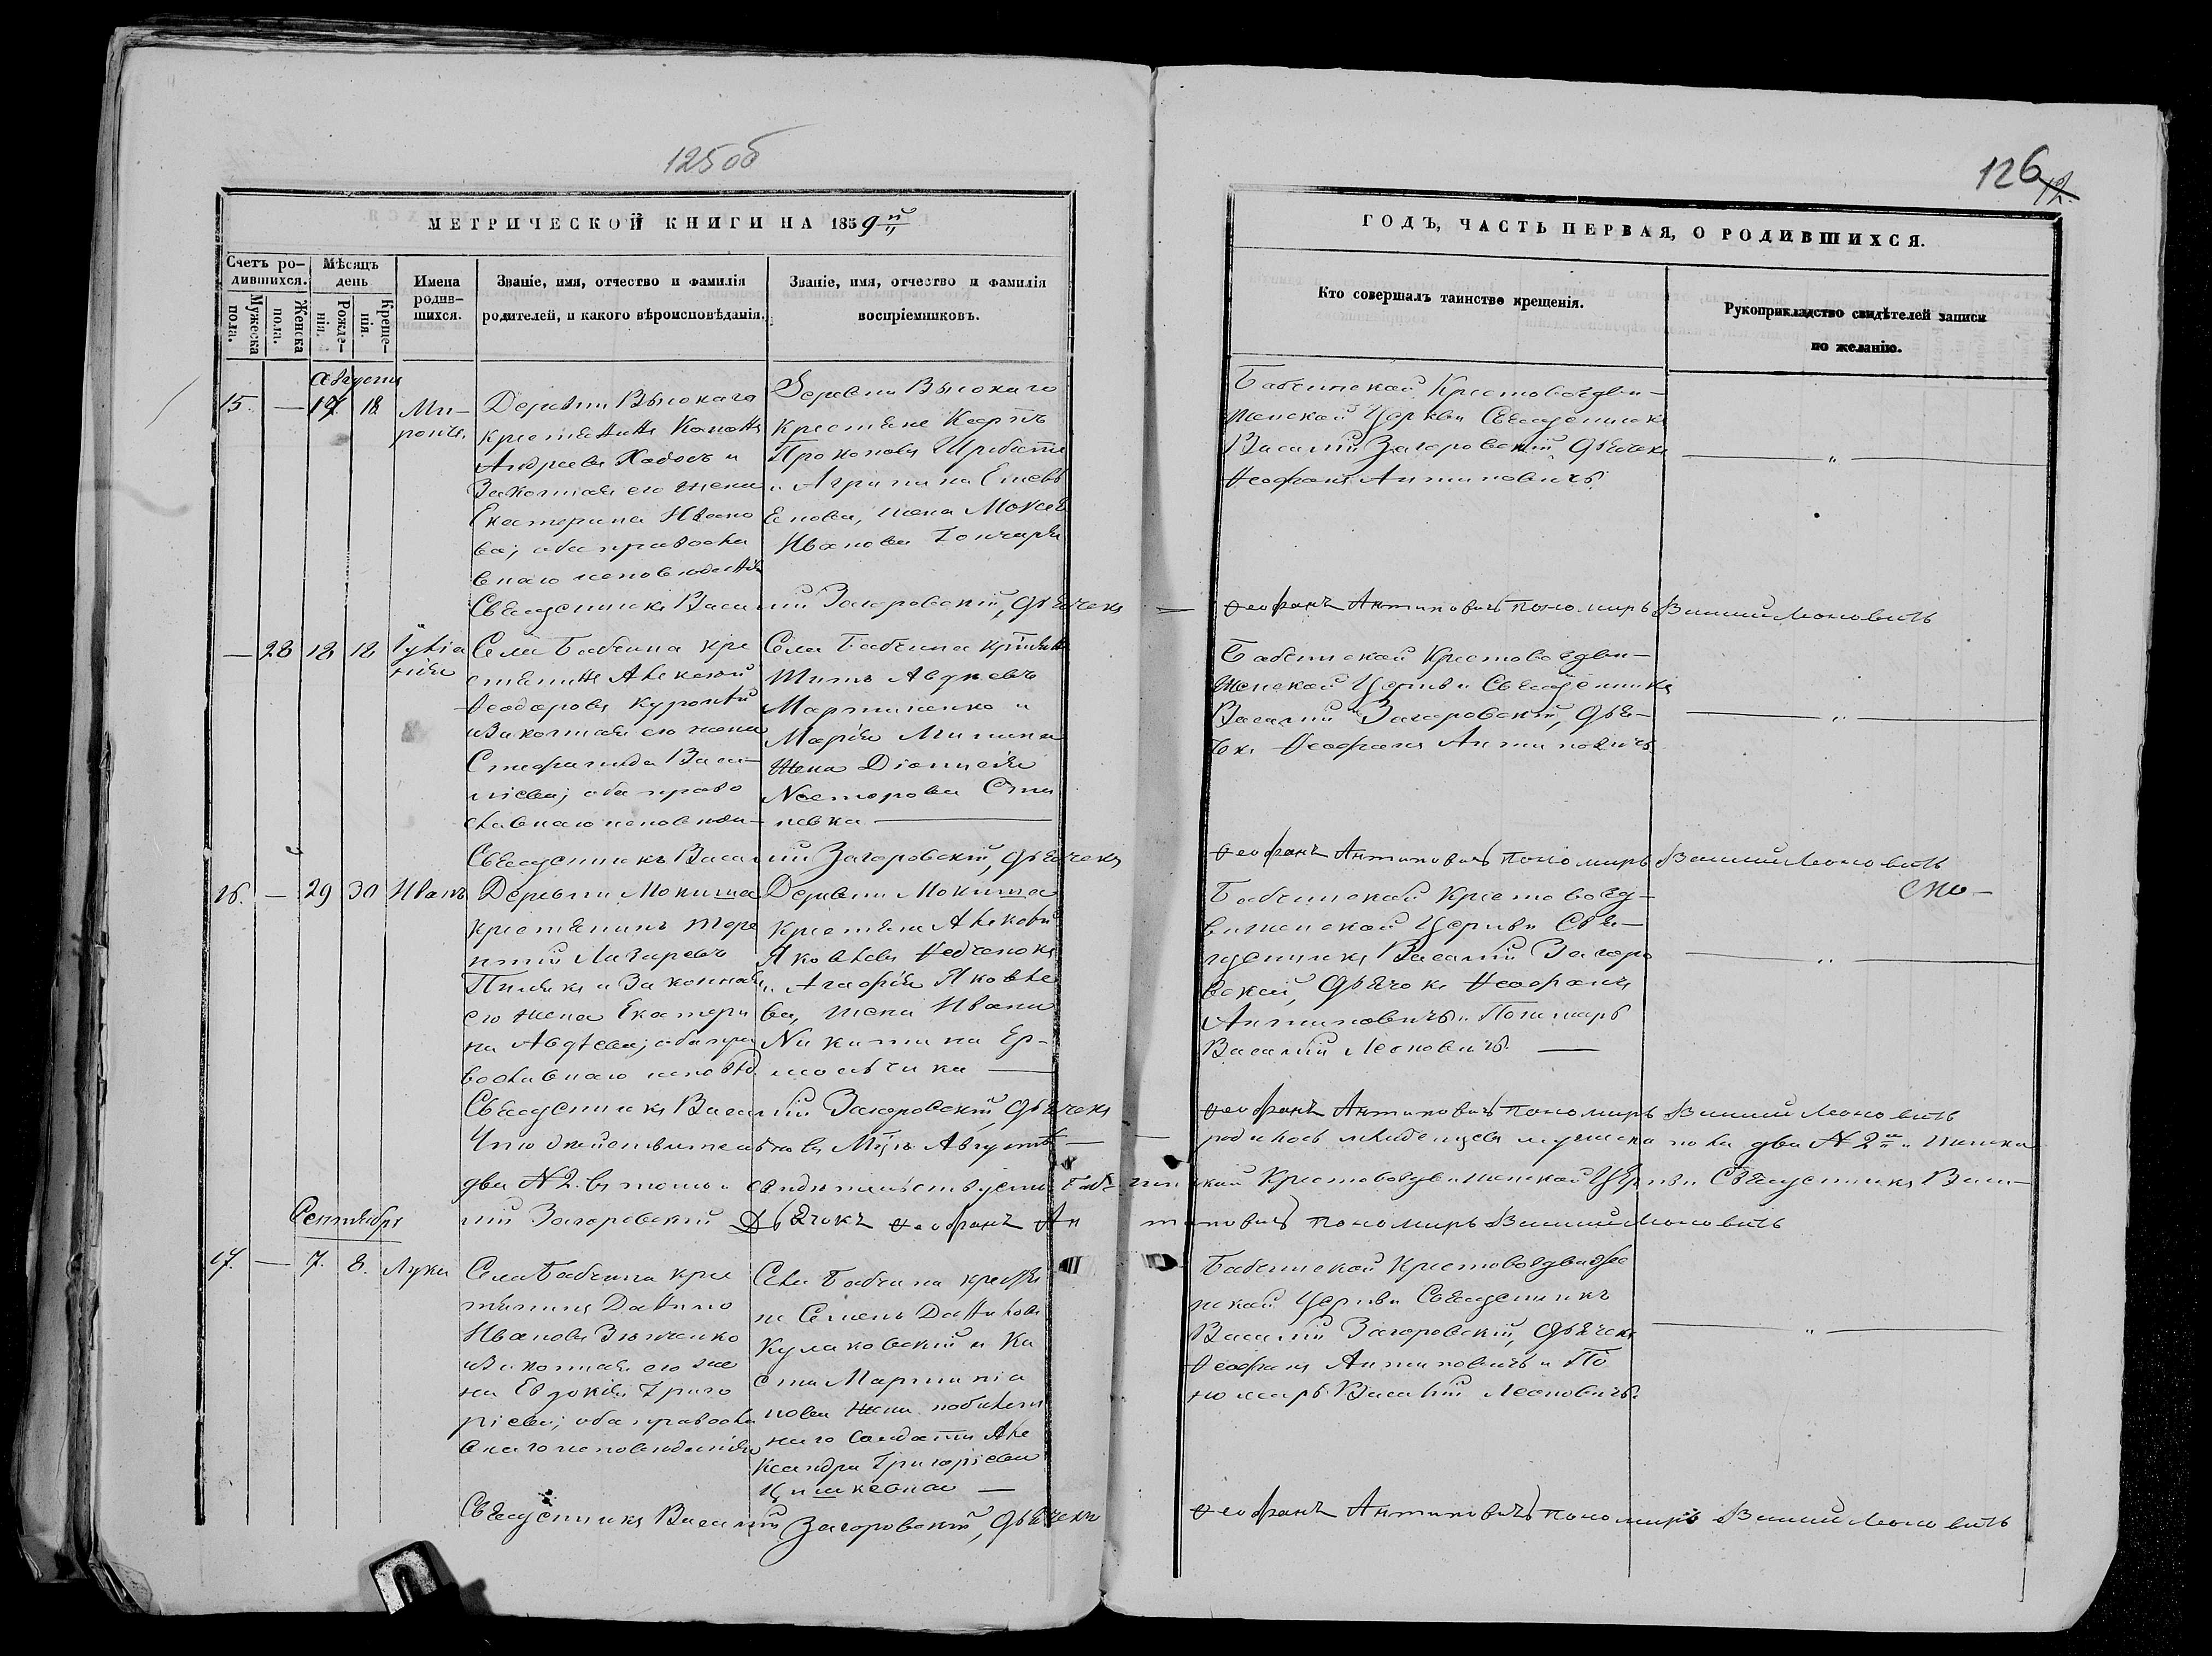 125 об
МЕТРИЧЕСКОЙ КНИГИ НА 1859 й
Счетъ ро-
дившихся.
Мужеска пола.
Женска пола.
Мѣсяцъ
день
Рожде-
нія.
Креще-
нія.
Имена
родив-
шихся.
Званіе, имя, отчество и фамилія
родителей, и какого вѣроисповѣданія.
Званіе, имя, отчество и фамилія
воспріемниковъ.
Августа
15. — 17. 18.
Ми-
ронъ.
Деревни Высокаго
крестьянинъ
Андреевъ Хобось и
Законная его жена
Екатерина Ивано
ва; оба правосла
внаго исповѣданія
Деревни Высокаго
крестьяне Карпъ
Прокоповъ
и Агрипина
жена
Иванова Гончара
Священникъ Василій Загоровскій, Дьячекъ
— 28 18 18
Села Бабчина кре
стьянинъ Алексій
Ѳеодоровъ
и Законная его жена
Стефанида Васи-
ліева; оба право
славнаго исповѣда-
Села Бабчина
Титъ Авдѣевъ
Мартиненко и
Марія Минина
жена Діонисія
Несторова
Священникъ Василій Загоровскій, Дьячекъ
16. — 29 30 Иванъ
Деревни Мокиша
крестьянинъ Тере
нтій Лазаревъ
и Законная
его жена Екатери
на Авдѣева; оба пра
вославнаго исповѣд.
Деревни Мокиша
крестьяне Алексѣй
Яковлевъ Федченокъ
и Агафія Яковле
ва, жена Ивана
Никитина Ер-
мольчика —
Священникъ Василій Загоровскій, Дьячекъ
Что дѣйствительно въ Мцѣ Августѣ —
два № 2. въ томъ и свидѣтельствуемъ Баб-
лій Загоровскій Дьячокъ Ѳеофанъ Ан
Сентября
17. — 7. 8. Лука
Села Бабчина кре
стьянинъ Данило
Ивановъ Зинченко
и Законная его же
на Евдокія Григо
ріева; оба правосла
внаго исповѣданія
Села Бабчина крестья
не Семенъ Даниловъ
Кулаковскій и Ка
Мартиніа
нова жена
наго солдата Але
ксандра Григоріева
Священникъ Василій Загоровскій, Дьячекъ
126
12.
ГОДЪ, ЧАСТЬ ПЕРВАЯ, О РОДИВШИХСЯ.
Кто совершалъ таинство крещенія.
Рукоприкладство свидѣтелей записи
по желанію.
Бабчинской Крестовоздви-
женской Церкви Священникъ
Василій Загоровскій, Дьячекъ
Ѳеофанъ Антиповичъ.
— Ѳеофанъ Антиповичъ пономарь Василій Леоновичъ
Бабчинской Крестовоздви-
женской Церкви Священникъ
Василій Загоровскій, Дья-
чекъ Ѳеофанъ Антиповичъ
Ѳеофанъ Антиповичъ пономарь Василій Леоновичъ
Бабчинской Крестовозд-
виженской Церкви Свя-
щенникъ Василій Загоро
вскій, Дьячокъ Ѳеофанъ
Антиповичъ и Пономарь
Василій Леоновичъ. —
Ѳеофанъ Антиповичъ пономарь Василій Леоновичъ
— родилось младенцевъ мужеска пола два № 2 и женска
чинской Крестовоздвиженской Церкви Священникъ Васи-
типовичъ пономарь Василій Леоновичъ
Бабчинской Крестовоздвиже
нской Церкви Священникъ
Василій Загоровскій, Дьячекъ
Ѳеофанъ Антиповичъ и По
номарь Василій Леоновичъ.
Ѳеофанъ Антиповичъ пономарь Василій Леоновичъ